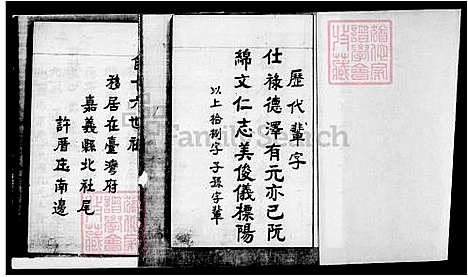 歷代輩字
仕祿德澤有元亦己阮
綿文仁志美俊儀標陽
以上拾捌字子孫字輩
十六世祖
移居在臺灣府
嘉義縣北社尾
許厝庄南邊
FamilySearch